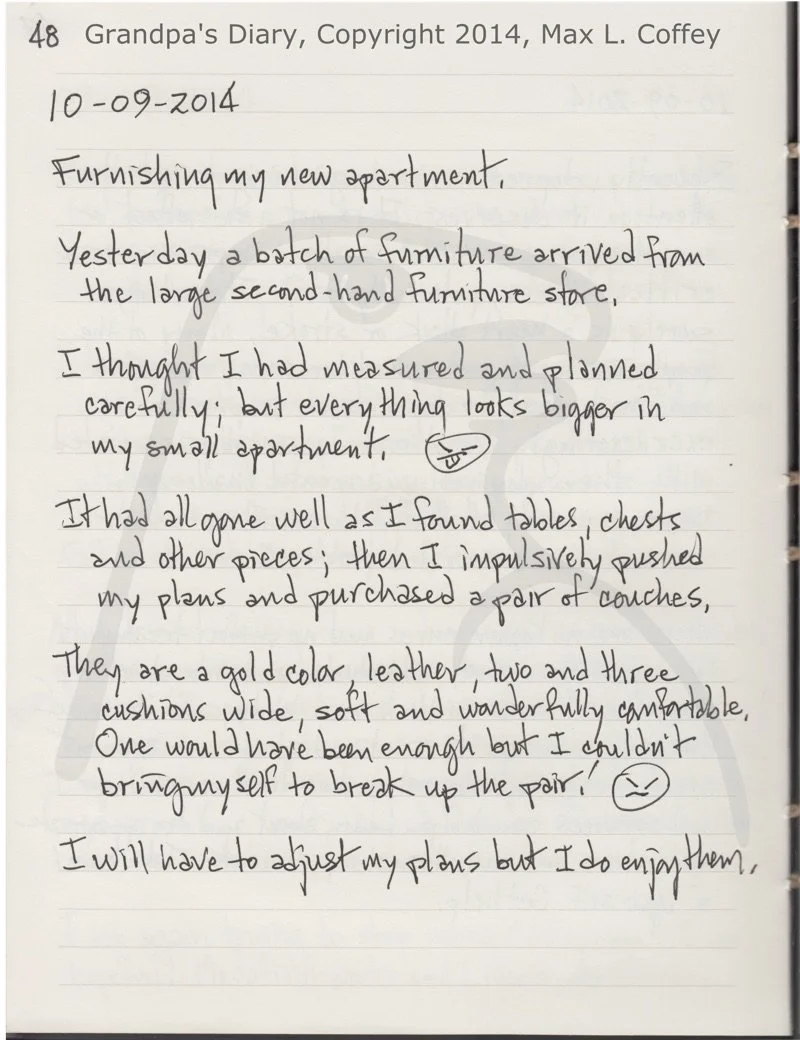 48 Grandpa's Diary, Copyright 2014, Max L. Coffey
10-09-2014
Furnishing my new apartment.
Yesterday a batch of furniture arrived from
the large second-hand furniture store.
I thought I had measured and planned
carefully; but everything looks bigger in
my small apartment.
It had all gone well as I found tables, chests
and other pieces; then I impulsively pushed
my plans and purchased a pair of couches.
They are a gold color, leather, two and three
cushions wide, soft and wonderfully comfortable.
One would have been enough but I couldn't
bring myself to break up the pair!
I will have to adjust my plans but I do enjoy them.